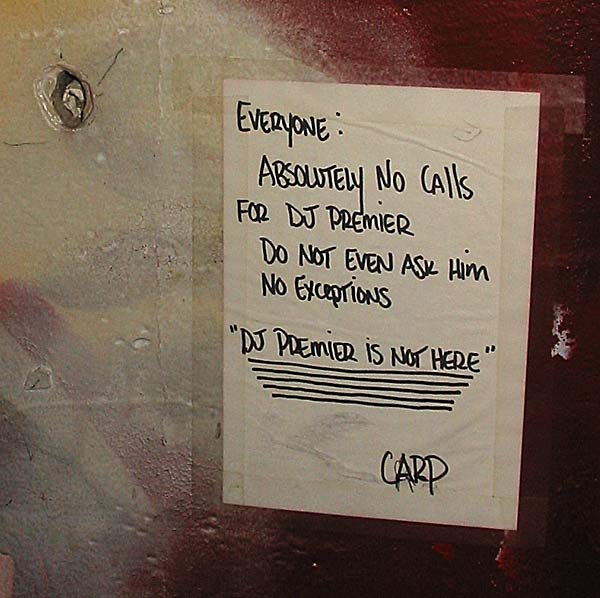 EVERYONE:
ABSOLUTELY NO CAllS
FOR DJ PREMIER
DO NOT EVEN ASK Him
NO EXCEPTIONS
"DJ PREMIER IS NOT HERE"
CARP